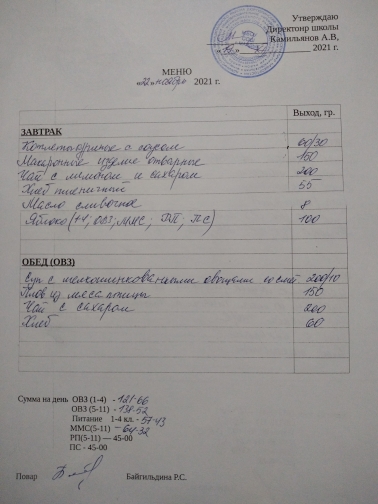 Утверждаю
Директонр школы
Камильянов А.В,
2021 г.
МЕНЮ
„22" ноябрь 2021 г.
Выход, гр.
ЗАВТРАК
Котлеты куриное с сыром 60/30
Макаронное изделие отварные 150
Чай с лимоном и сахаром 200
Хлеб пшеничный 55
Масло сливочное 8
Яблоко (1-4; ОВЗ; ММС; РП; ПС) 100
ОБЕД (ОВЗ)
Суп с мелкошинкованными овощами со смет 200/10
Плов из мяса птицы 150
Чай с сахаром 200
Хлеб 60
Сумма на день ОВЗ (1-4) - 121-66
ОВЗ (5-11) - 138-52
Питание 1-4 кл. - 57-43
ММС(5-11) - 64-32
РП(5-11) — 45-00
ПС - 45-00
Повар Байгильдина Р.С.